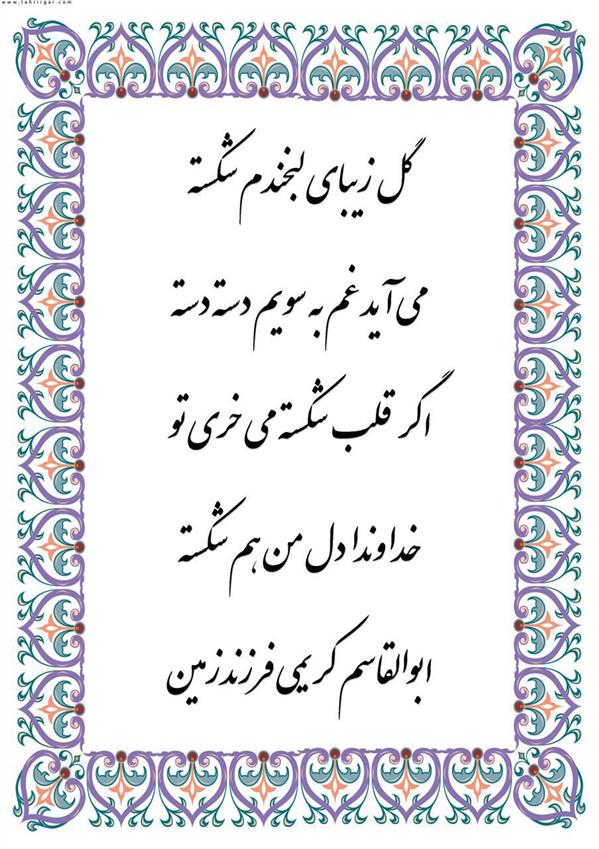 www.tahrirgar.com
گل زیبای لبخندم شکسته
می آید غم به سویم دسته دسته
اگر قلب شکسته می خری تو
خداوندا دل من هم شکسته
ابوالقاسم کریمی فرزندزمین